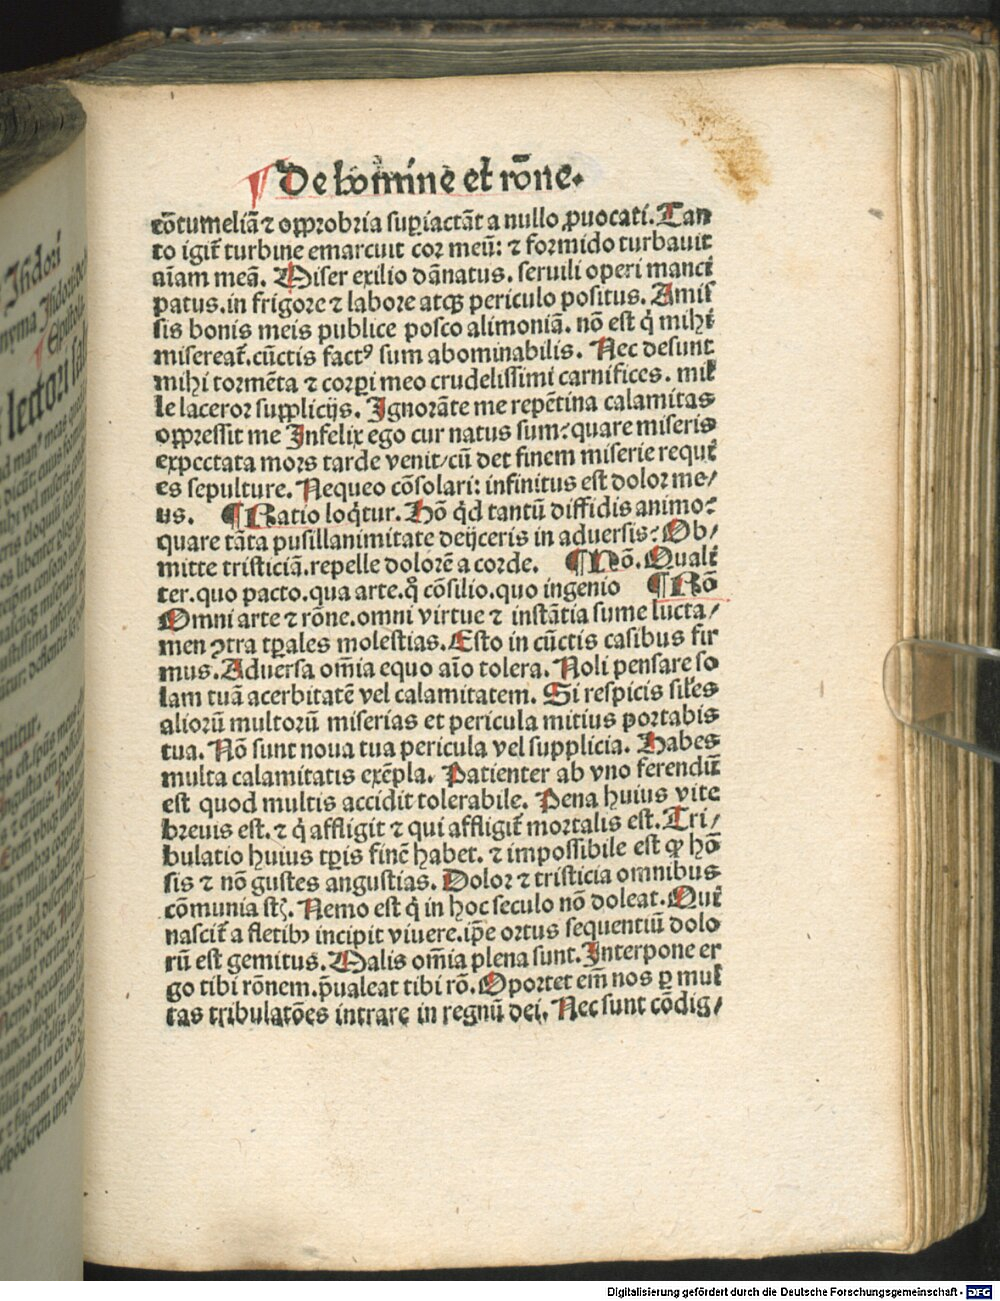 De homine et rōne.
cōtumeliā ⁊ opprobria suꝑiactāt a nullo ꝓuocati. Tan
to igit̄ turbine emarcuit cor meū: ⁊ formido turbauit
aīam meā. Miser exilio dānatus. seruili operi manci
patus. in frigore ⁊ labore atqꝫ periculo positus. Amis
sis bonis meis publice posco alimoniā. nō est q̇ mihi
misereat̄. cūctis factꝰ sum abominabilis. Nec desunt
mihi tormēta ⁊ corꝑi meo crudelissimi carnifices. mil
le laceror supplicijs. Ignorāte me repētina calamitas
oppressit me Infelix ego cur natus sum: quare miseris
expectata mors tarde venit/ cū det finem miserie requi
es sepulture. Nequeo cōsolari: infinitus est dolor me/
us. ¶ Ratio loq̇tur. Hō q̇d tantū diffidis animo:
quare tāta pusillanimitate deijceris in aduersis: Ob/
mitte tristiciā. repelle dolorē a corde. ¶ Hō. Quali
ter. quo pacto. qua arte. q̊ cōsilio. quo ingenio ¶ Rō
Omni arte ⁊ rōne. omni virtue ⁊ instātia sume lucta/
men ꝯtra tꝑales molestias. Esto in cūctis casibus fir
mus. Aduersa om̄ia equo aīo tolera. Noli pensare so
lam tuā acerbitatē vel calamitatem. Si respicis sil̄es
aliorū multorū miserias et pericula mitius portabis
tua. Nō sunt noua tua pericula vel supplicia. Habes
multa calamitatis exēpla. Patienter ab vno ferendū
est quod multis accidit tolerabile. Pena huius vite
breuis est. ⁊ q̇ affligit ⁊ qui affligit̄ mortalis est. Tri/
bulatio huius tꝑis finē habet. ⁊ impossibile est qꝙ hō
sis ⁊ nō gustes angustias. Dolor ⁊ tristicia omnibus
cōmunia st̄. Nemo est q̇ in hoc seculo nō doleat. Qui
nascit̄ a fletibꝫ incipit viuere. ip̄e ortus sequentiū dolo
rū est gemitus. Malis om̄ia plena sunt. Interpone er
go tibi rōnem. p̄ualeat tibi rō. Oportet em̄ nos ꝑ mul
tas tribulatōes intrare in regnū dei. Nec sunt cōdig/
Isidori
Epistola
lectori
Digitalisierung gefördert durch die Deutsche Forschungsgemeinschaft - DFG